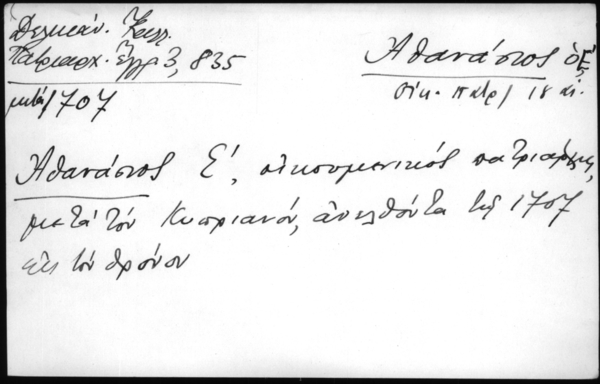 Δελικάν. Καλλ.
Πατριαρχ. Ἔγγρ 3, 835
μετά/1707
Ἀθανάσιος ὁ Ε΄
Οἰκ. πατρ/ 18 αἰ.
Ἀθανάσιος Ε΄, οἰκουμενικός πατριάρχης,
μετά τόν Κυπριανόν, ἀνελθόντα τῷ 1707
εἰς τόν θρόνον